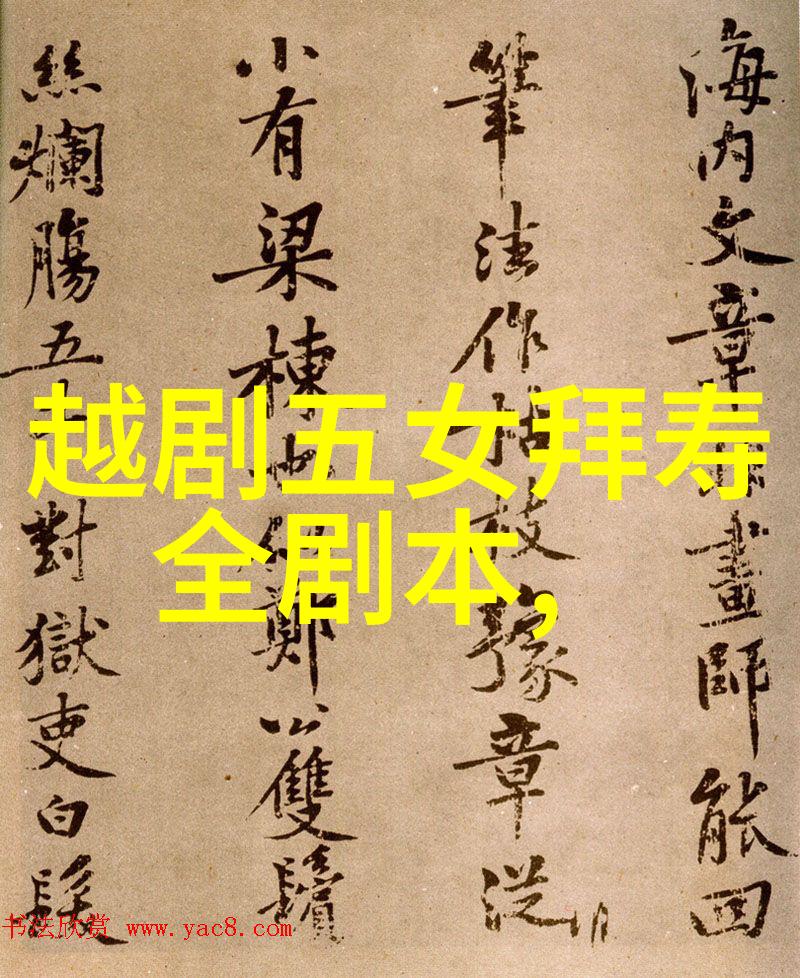 海內文章畫師能回
筆法作枯枝豫章從
小有梁棟鄭公雙鬢
絲爛腸五對獄吏白髮
越剧五女拜寿
全剧本,
书法欣赏 www.yac8.com